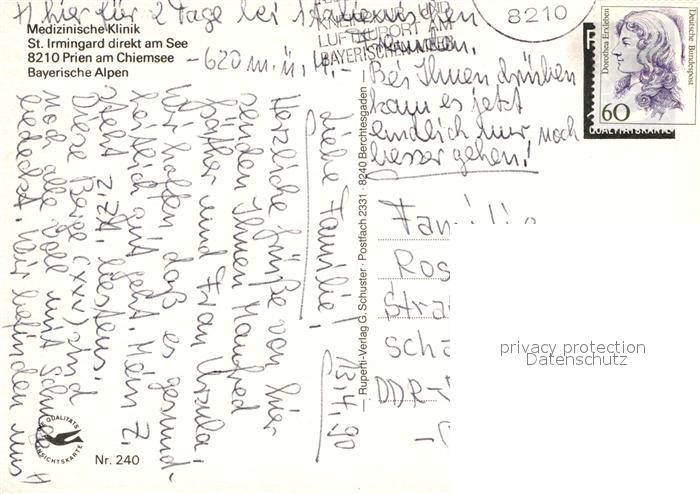 Medizinische Klinik
St. Irmingard direkt am See
8210 Prien am Chiemsee
Bayerische Alpen
- 620 m. ü. M. -
8210
KNEIPP- UND
LUFTKURORT AM
BAYERISCHEN MEER
Dorothea Erxleben
Deutsche Bundespost
60
QUALITÄTSKARTE
13.4.90
Liebe Familie!
Herzliche Grüße von hier
senden Ihnen Manfred
Günther und Frau Ursula.
Wir hoffen, daß es gesund-
heitlich gut geht. Mein Z.
steht z. Zt. gestern.
Diese Berge (xxv) sind
noch alle voll mit Schnee
bedeckt. Wir befinden uns
hier für 2 Tage bei
Freunden.
Bei Ihnen drüben
kann es jetzt
endlich nur noch
besser gehen!
Ruperti-Verlag G. Schuster · Postfach 2331 · 8240 Berchtesgaden
Familie
Ros
Stra
Scha
DDR-
QUALITÄTS
ANSICHTSKARTE
Nr. 240
privacy protection
Datenschutz